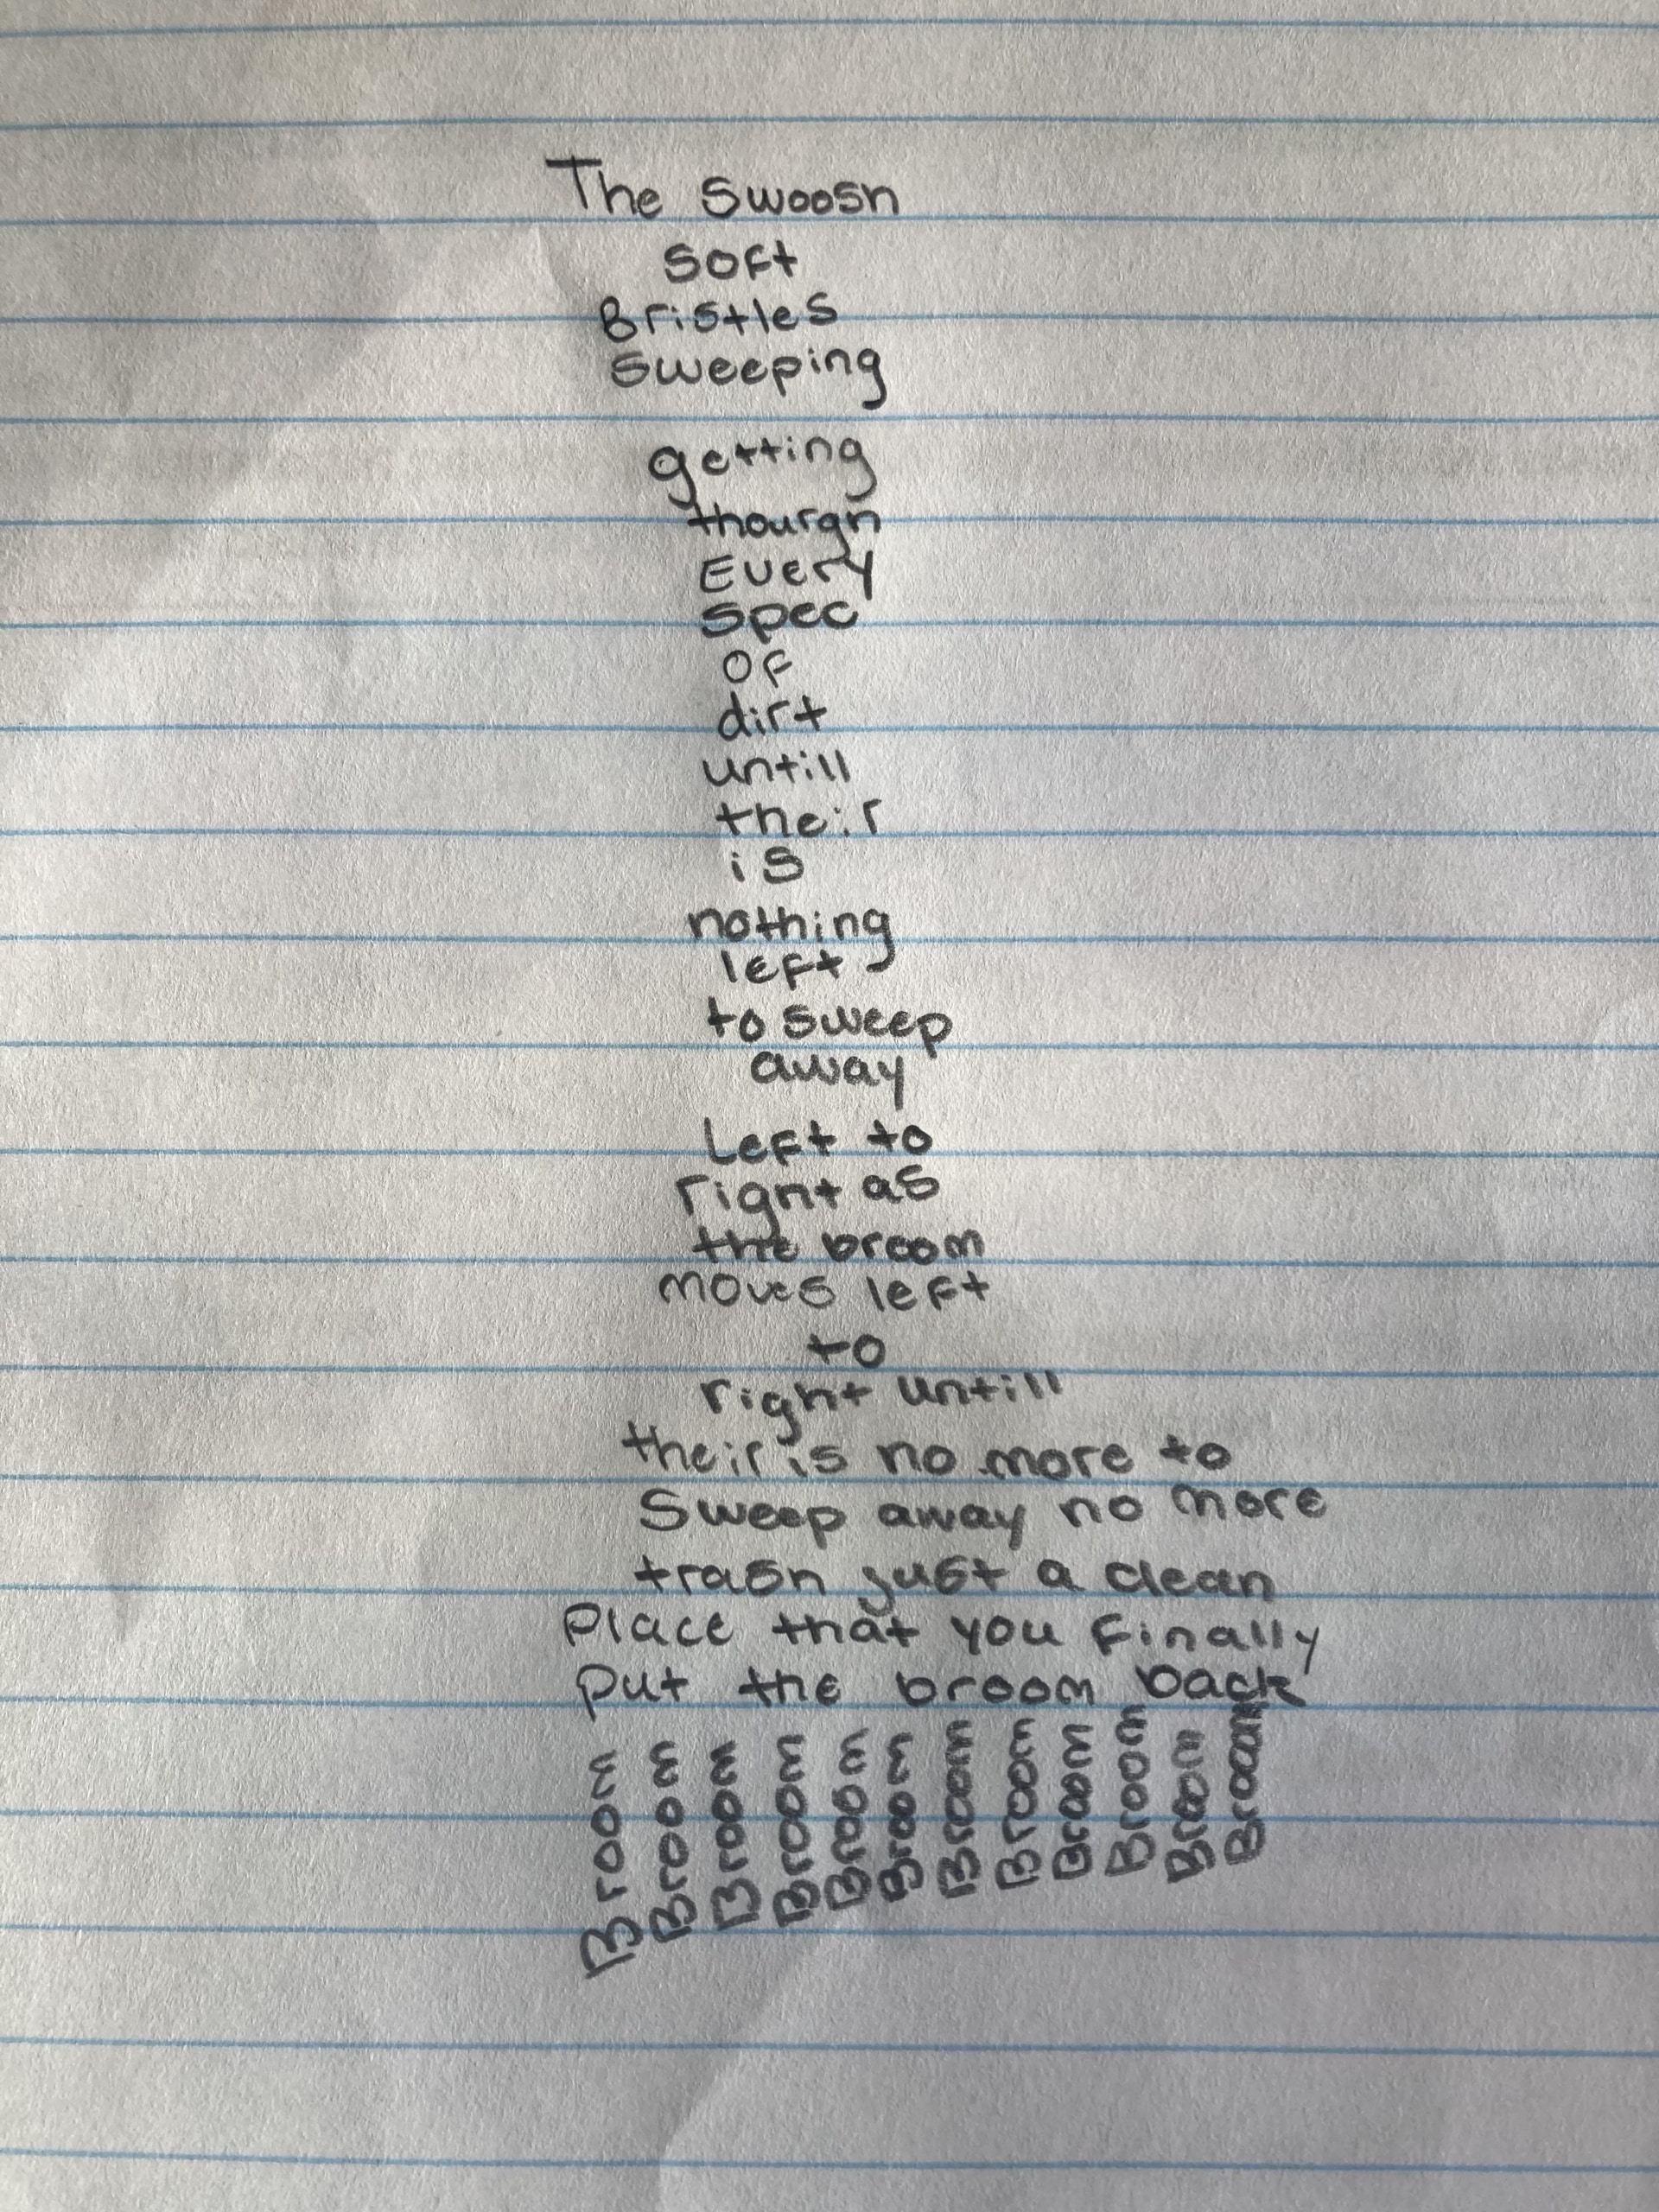 The Swoosh
Soft
Bristles
Sweeping
getting
thourgh
Every
Spec
OF
dirt
untill
their
is
nothing
left
to sweep
away
Left to
right as
the broom
moves left
to
right untill
their is no more to
Sweep away no more
trash just a clean
Place that you finally
put the broom back
Broom
Broom
Broom
Broom
Broom
Broom
Broom
Broom
Broom
Broom
Broom
Broom